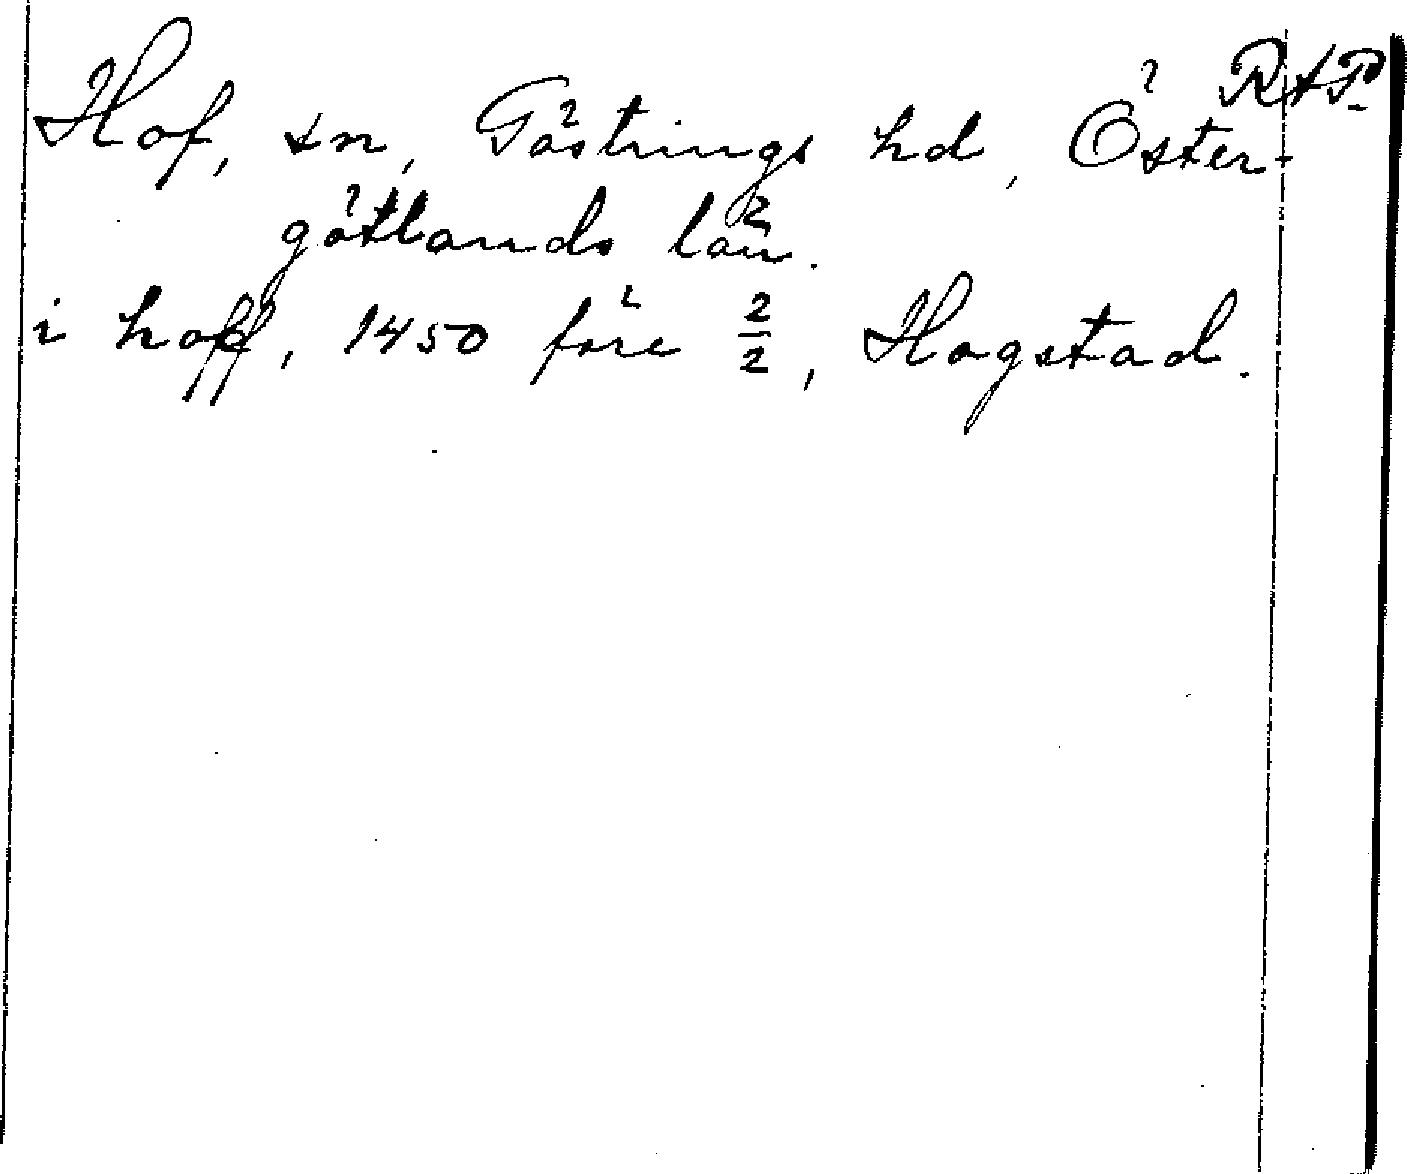 RAP
Hof, sn, Göstrings hd, Öster-
götlands län.
i hoff, 1450 före 2/2, Hogstad.